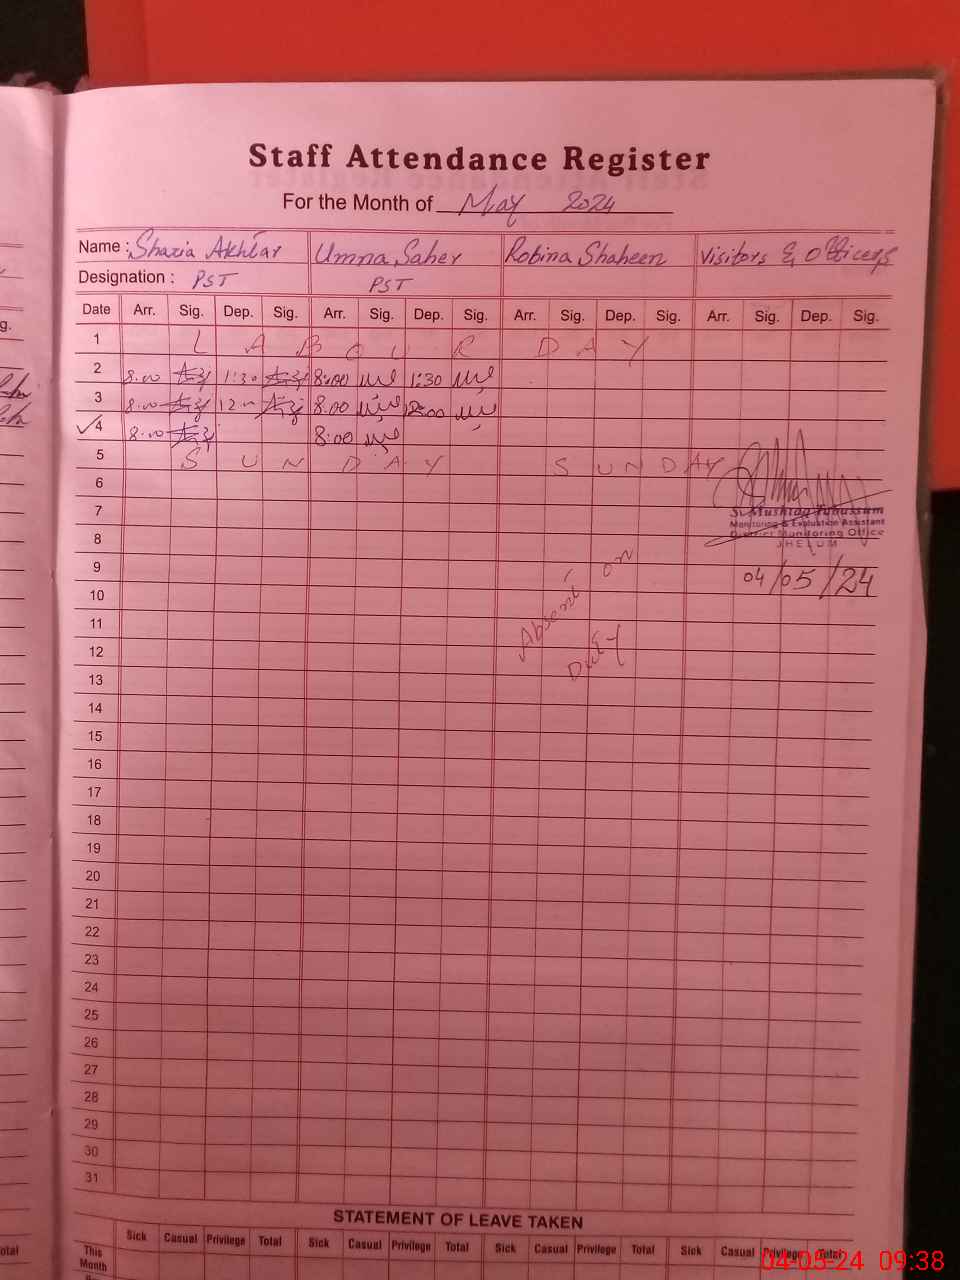 Staff Attendance Register
For the Month of May 2024
Name : Shazia Akhtar Umna Saher Robina Shaheen Visitors & Officers
Designation : PST PST
Date Arr. Sig. Dep. Sig. Arr. Sig. Dep. Sig. Arr. Sig. Dep. Sig. Arr. Sig. Dep. Sig.
1 LABOUR DAY
2 8.00 1:30 8:00 1:30
3 8.00 12.00 8.00 12:00
4 8.00 8:00
5 SUNDAY SUNDAY
6
7 S. Mushtaq Tabassum
Monitoring & Evaluation Assistant
8 District Monitoring Office
JHELUM
9 04/05/24
10
11 Absent on
12 Duty
13
14
15
16
17
18
19
20
21
22
23
24
25
26
27
28
29
30
31
STATEMENT OF LEAVE TAKEN
Sick Casual Privilege Total Sick Casual Privilege Total Sick Casual Privilege Total Sick Casual Privilege Total
This
Month
04-05-24 09:38